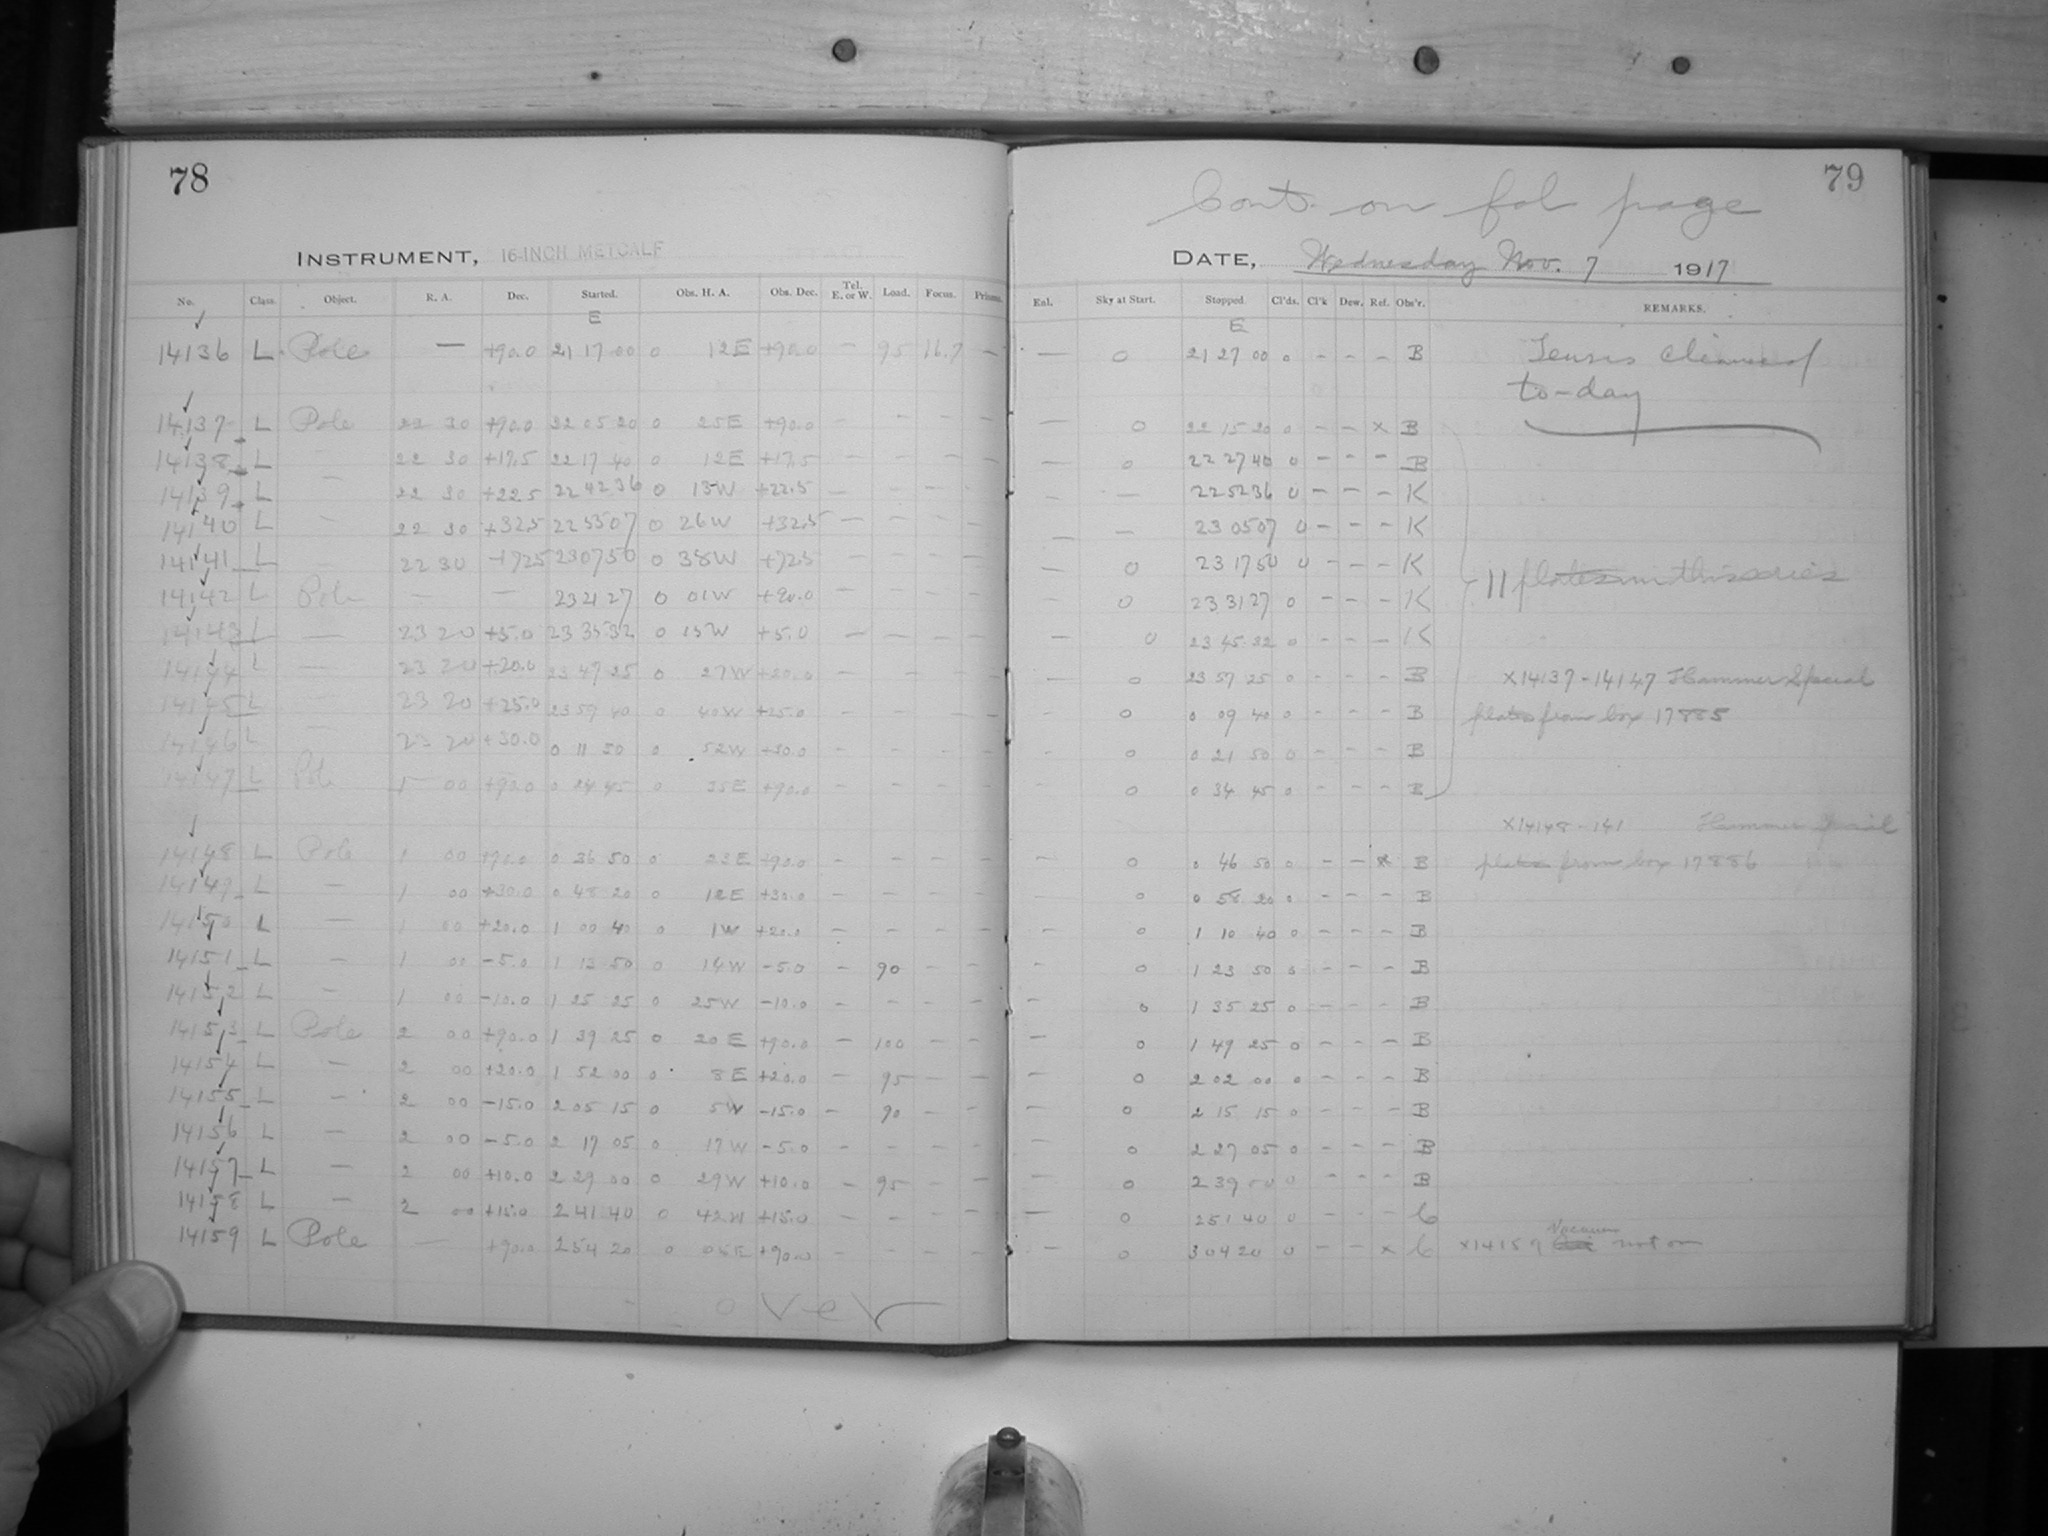 78
INSTRUMENT, 16-INCH METCALF
No. Class. Object. R. A. Dec. Started. Obs. H. A. Obs. Dec. Tel. E. or W. Load. Focus. Prisms.
E
14136 L Pole — +90.0 21 17 00 0 12E +90.0 — 95 16.7 —
14137 L Pole 22 30 +90.0 22 05 20 0 25E +90.0 — — — —
14138 L — 22 30 +17.5 22 17 40 0 12E +17.5 — — — —
14139 L — 22 30 +22.5 22 42 36 0 13W +22.5 — — — —
14140 L — 22 30 +32.5 22 55 07 0 26W +32.5 — — — —
14141 L — 22 30 +72.5 23 07 50 0 38W +72.5 — — — —
14142 L Pole — — 23 21 27 0 01W +90.0 — — — —
14143 L — 23 20 +5.0 23 35 32 0 15W +5.0 — — — —
14144 L — 23 20 +20.0 23 47 25 0 27W +20.0 — — — —
14145 L — 23 20 +25.0 23 59 40 0 40W +25.0 — — — —
14146 L — 23 20 +30.0 0 11 50 0 52W +30.0 — — — —
14147 L Pole 1 00 +90.0 0 24 45 0 35E +90.0 — — — —
14148 L Pole 1 00 +90.0 0 36 50 0 23E +90.0 — — — —
14149 L — 1 00 +30.0 0 48 20 0 12E +30.0 — — — —
14150 L — 1 00 +20.0 1 00 40 0 1W +20.0 — — — —
14151 L — 1 00 -5.0 1 13 50 0 14W -5.0 — 90 — —
14152 L — 1 00 -10.0 1 25 25 0 25W -10.0 — — — —
14153 L Pole 2 00 +90.0 1 39 25 0 20E +90.0 — 100 — —
14154 L — 2 00 +20.0 1 52 00 0 8E +20.0 — 95 — —
14155 L — 2 00 -15.0 2 05 15 0 5W -15.0 — 90 — —
14156 L — 2 00 -5.0 2 17 05 0 17W -5.0 — — — —
14157 L — 2 00 +10.0 2 29 00 0 29W +10.0 — 95 — —
14158 L — 2 00 +15.0 2 41 40 0 42W +15.0 — — — —
14159 L Pole — +90.0 2 54 20 0 05E +90.0 — — — —
over
79
Cont. on fol page
DATE, Wednesday Nov. 7 1917
Enl. Sky at Start. Stopped. Cl'ds. Cl'k Dew. Ref. Obs'r. REMARKS.
E
— 0 21 27 00 0 — — — B cleaned
to-day
— 0 22 15 20 0 — — x B
— 0 22 27 40 0 — — — B
— — 22 52 36 0 — — — K
— — 23 05 07 0 — — — K
— 0 23 17 50 0 — — — K 11 plates in this series
— 0 23 31 27 0 — — — K
— 0 23 45 32 0 — — — K
— 0 23 57 25 0 — — — B x14137-14147 Hammer Special
— 0 0 09 40 0 — — — B plates from box 17885
— 0 0 21 50 0 — — — B
0 0 34 45 0 — — — B
x14148-141 Hammer Special
— 0 0 46 50 0 — — x B plates from box 17886
— 0 0 58 20 0 — — — B
— 0 1 10 40 0 — — — B
— 0 1 23 50 0 — — — B
— 0 1 35 25 0 — — — B
— 0 1 49 25 0 — — — B
— 0 2 02 00 0 — — — B
— 0 2 15 15 0 — — — B
— 0 2 27 05 0 — — — B
— 0 2 39 00 0 — — — B
— 0 2 51 40 0 — — — C
— 0 3 04 20 0 — — x C x14159 Vacuum not on